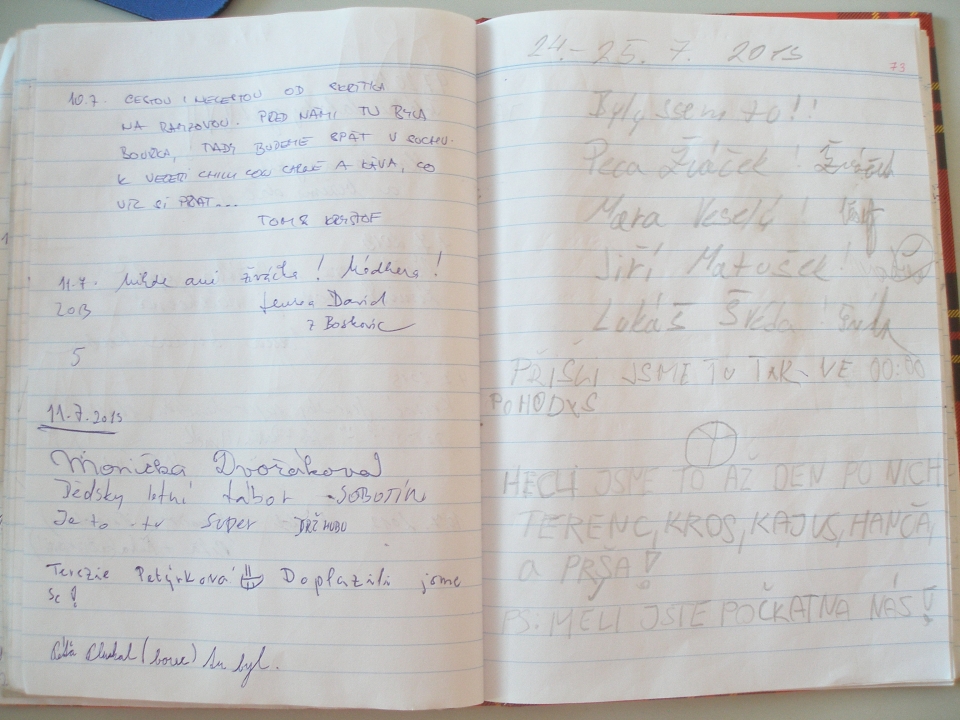 10.7. CESTOU I NECESTOU OD SKŘÍTKA
NA RAMZOVOU. PŘED NÁMI TU BYLA
BOUŘKA, TADY BUDEME SPÁT V SUCHU.
K VEČEŘI CHILLI CON CARNE A KÁVA, CO
VÍC SI PŘÁT...
TOM & KRYŠTOF
11.7. Nikde ani živáčka! Nádhera!
2013 Lenka David
z Boskovic
5
11.7.2013
Monička Dvořáková
Dědsky letní tábor SOBOTÍN
Je to tu super DRŽHUBU
Terezie Petýrková Doplazili jsme
se!
(borec) tu byl.
24.-25. 7. 2013
73
Byly jsem to!!
Peca Žváček! Žváček
Mara Veselý! Veselý
Jiří Matušek!
Lukáš Švéda! Švéda
PŘIŠLI JSME TU TAK VE 00:00
POHODXS
HECH JSME TO AŽ DEN PO NICH
TERENC, KROS, KAJUS, HANČA,
a PRŠA!
PS: MĚLI JSTE POČKAT NA NÁS!